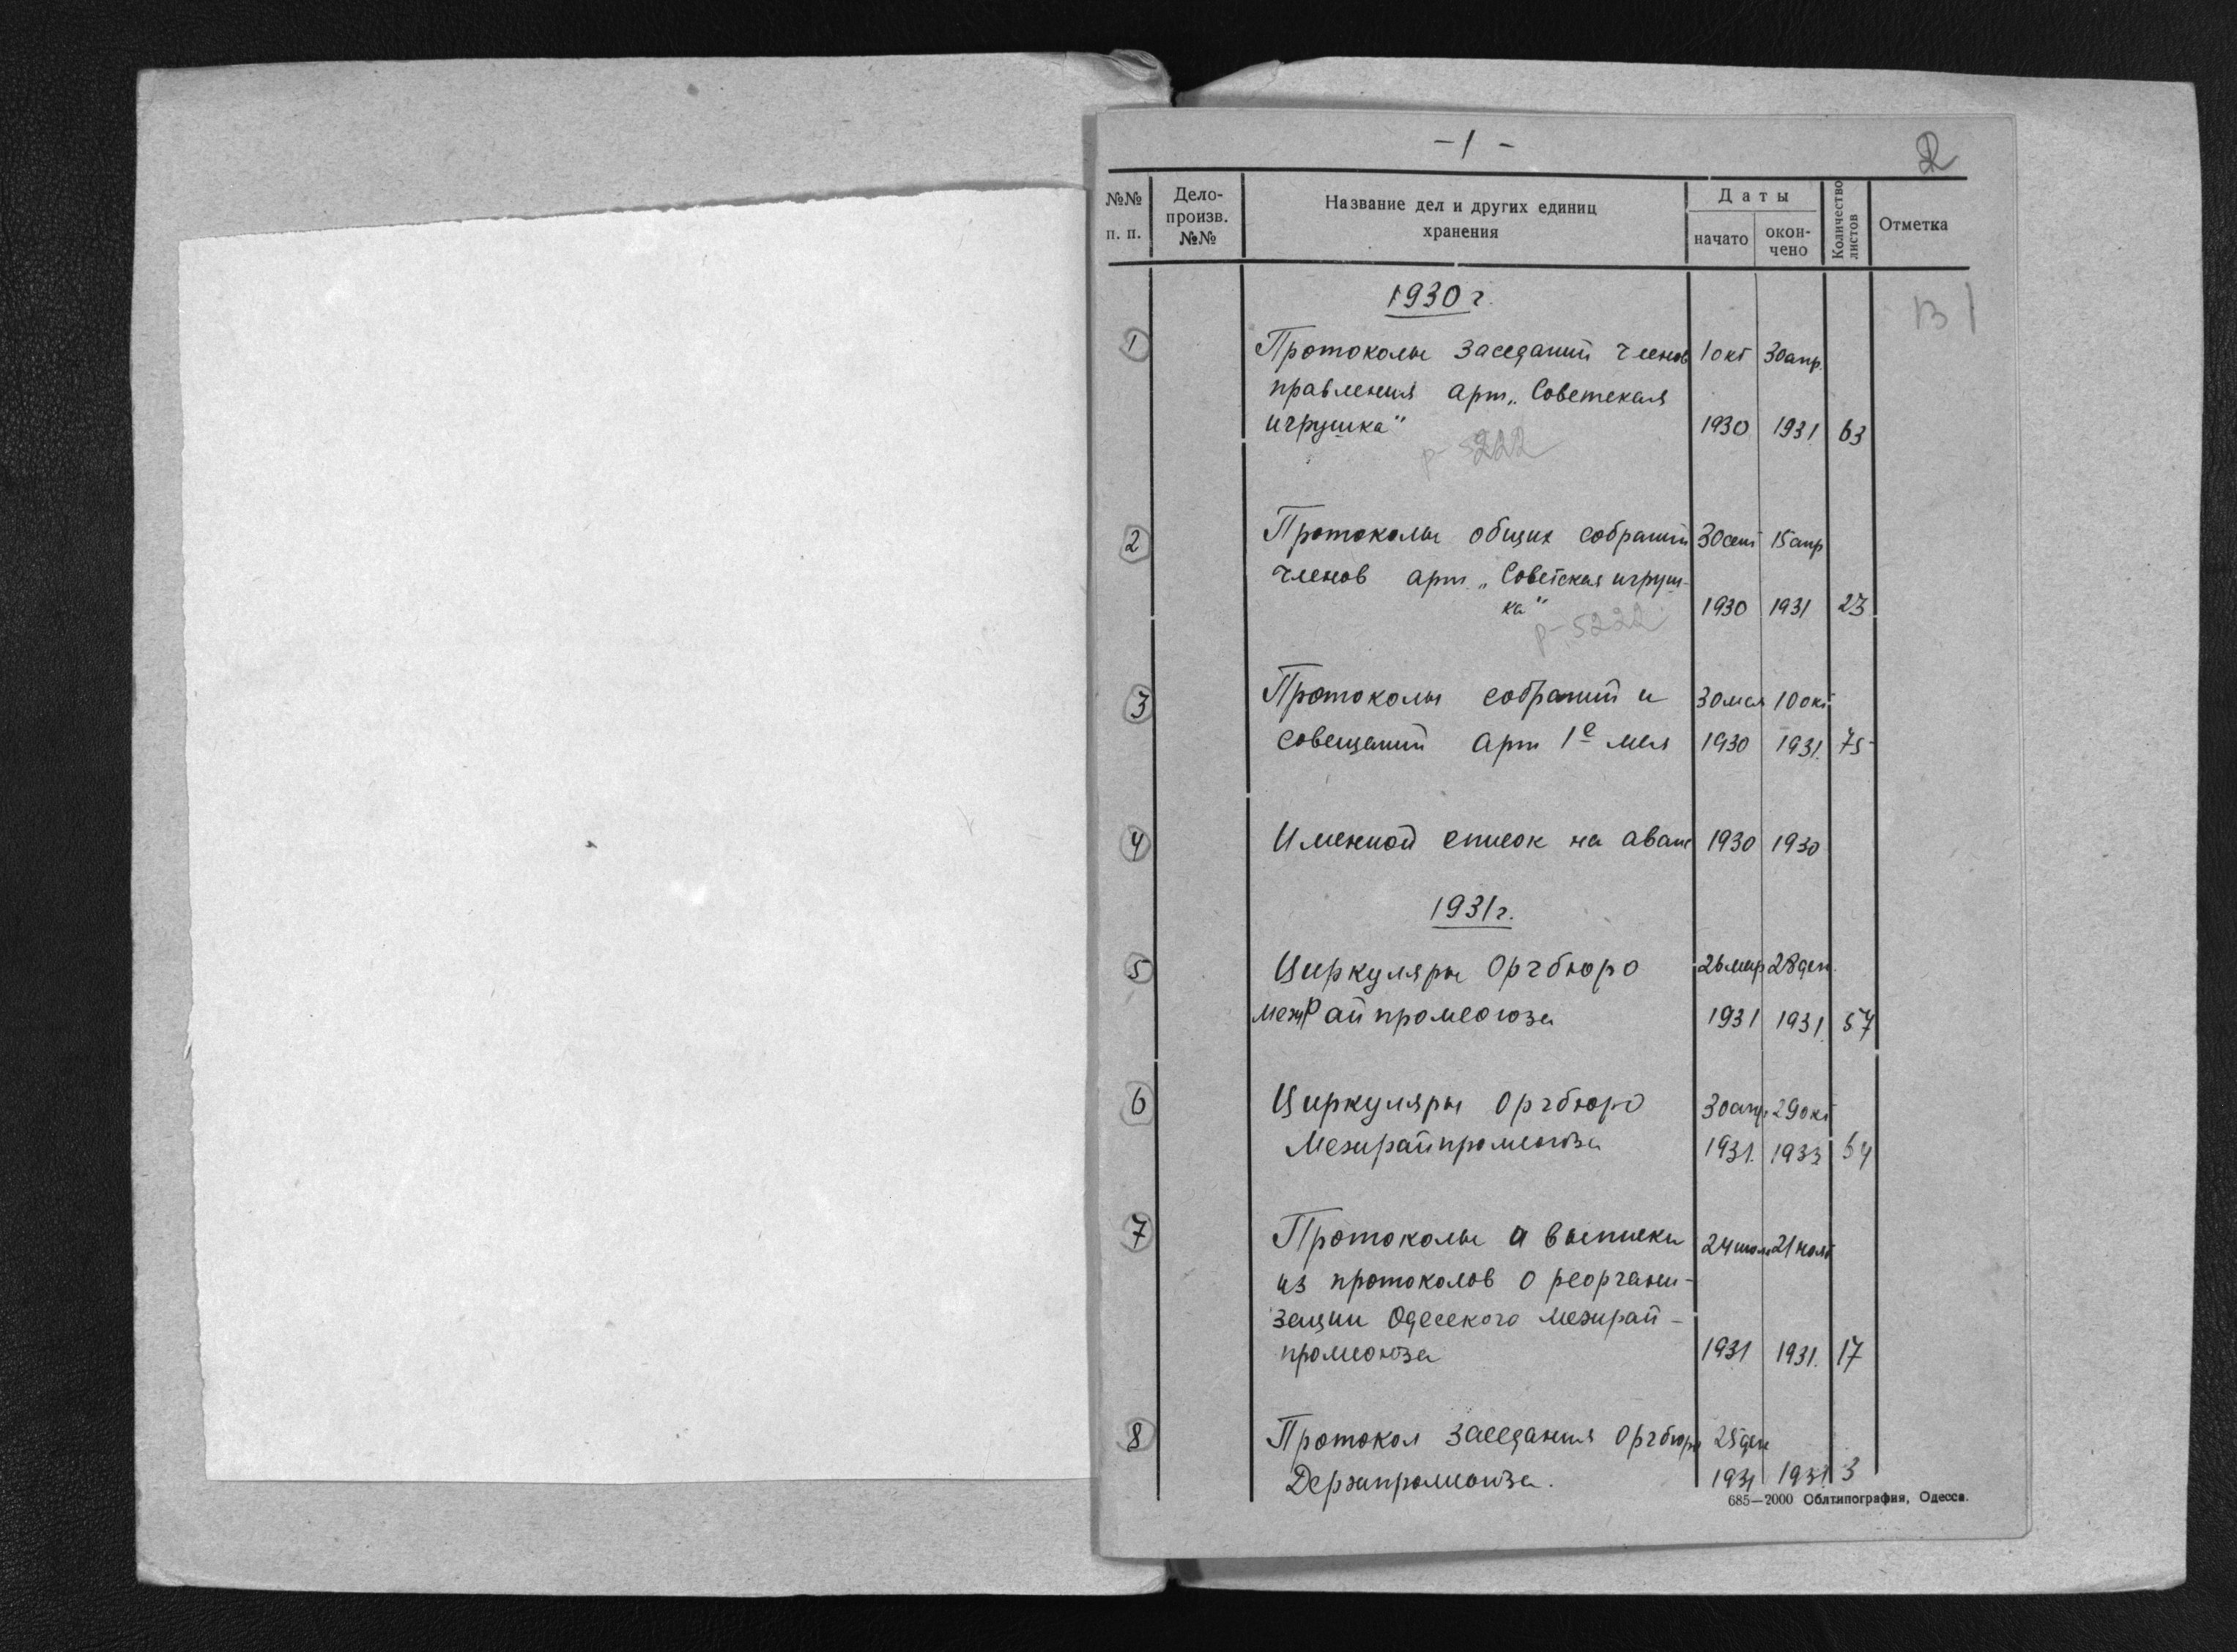 - 1 -
2
№№ п. п.
Дело-
произв.
№№
Название дел и других единиц
хранения
Даты
начато
окон-
чено
Количество
листов
Отметка
1930 г.
1 Протоколы заседаний членов 1 окт 30 апр.
правления арт. „Советская
игрушка" 1930 1931 63
р-5222
2 Протоколы общих собраний 30 сент 15 апр
членов арт. „Советская игруш-
ка" 1930 1931 23
р-5222
3 Протоколы собраний и 30 мая 10 окт.
совещаний арт 1е мая 1930 1931. 75
4 Именной список на аванс 1930 1930
1931 г.
5 Циркуляры Оргбюро 26 мар 28 дек.
МежРайпромсоюза 1931 1931. 57
6 Циркуляры Оргбюро 30 апр. 29 окт
Межрайпромсоюза 1931. 1933 54
7 Протоколы и выписки 24 июл 21 нояб
из протоколов о реоргани-
зации Одесского межрай-
промсоюза 1931 1931. 17
8 Протокол заседания Оргбюро 25 дек
Держпромсоюза. 1931 1931 3
685—2000 Облтипография, Одесса.